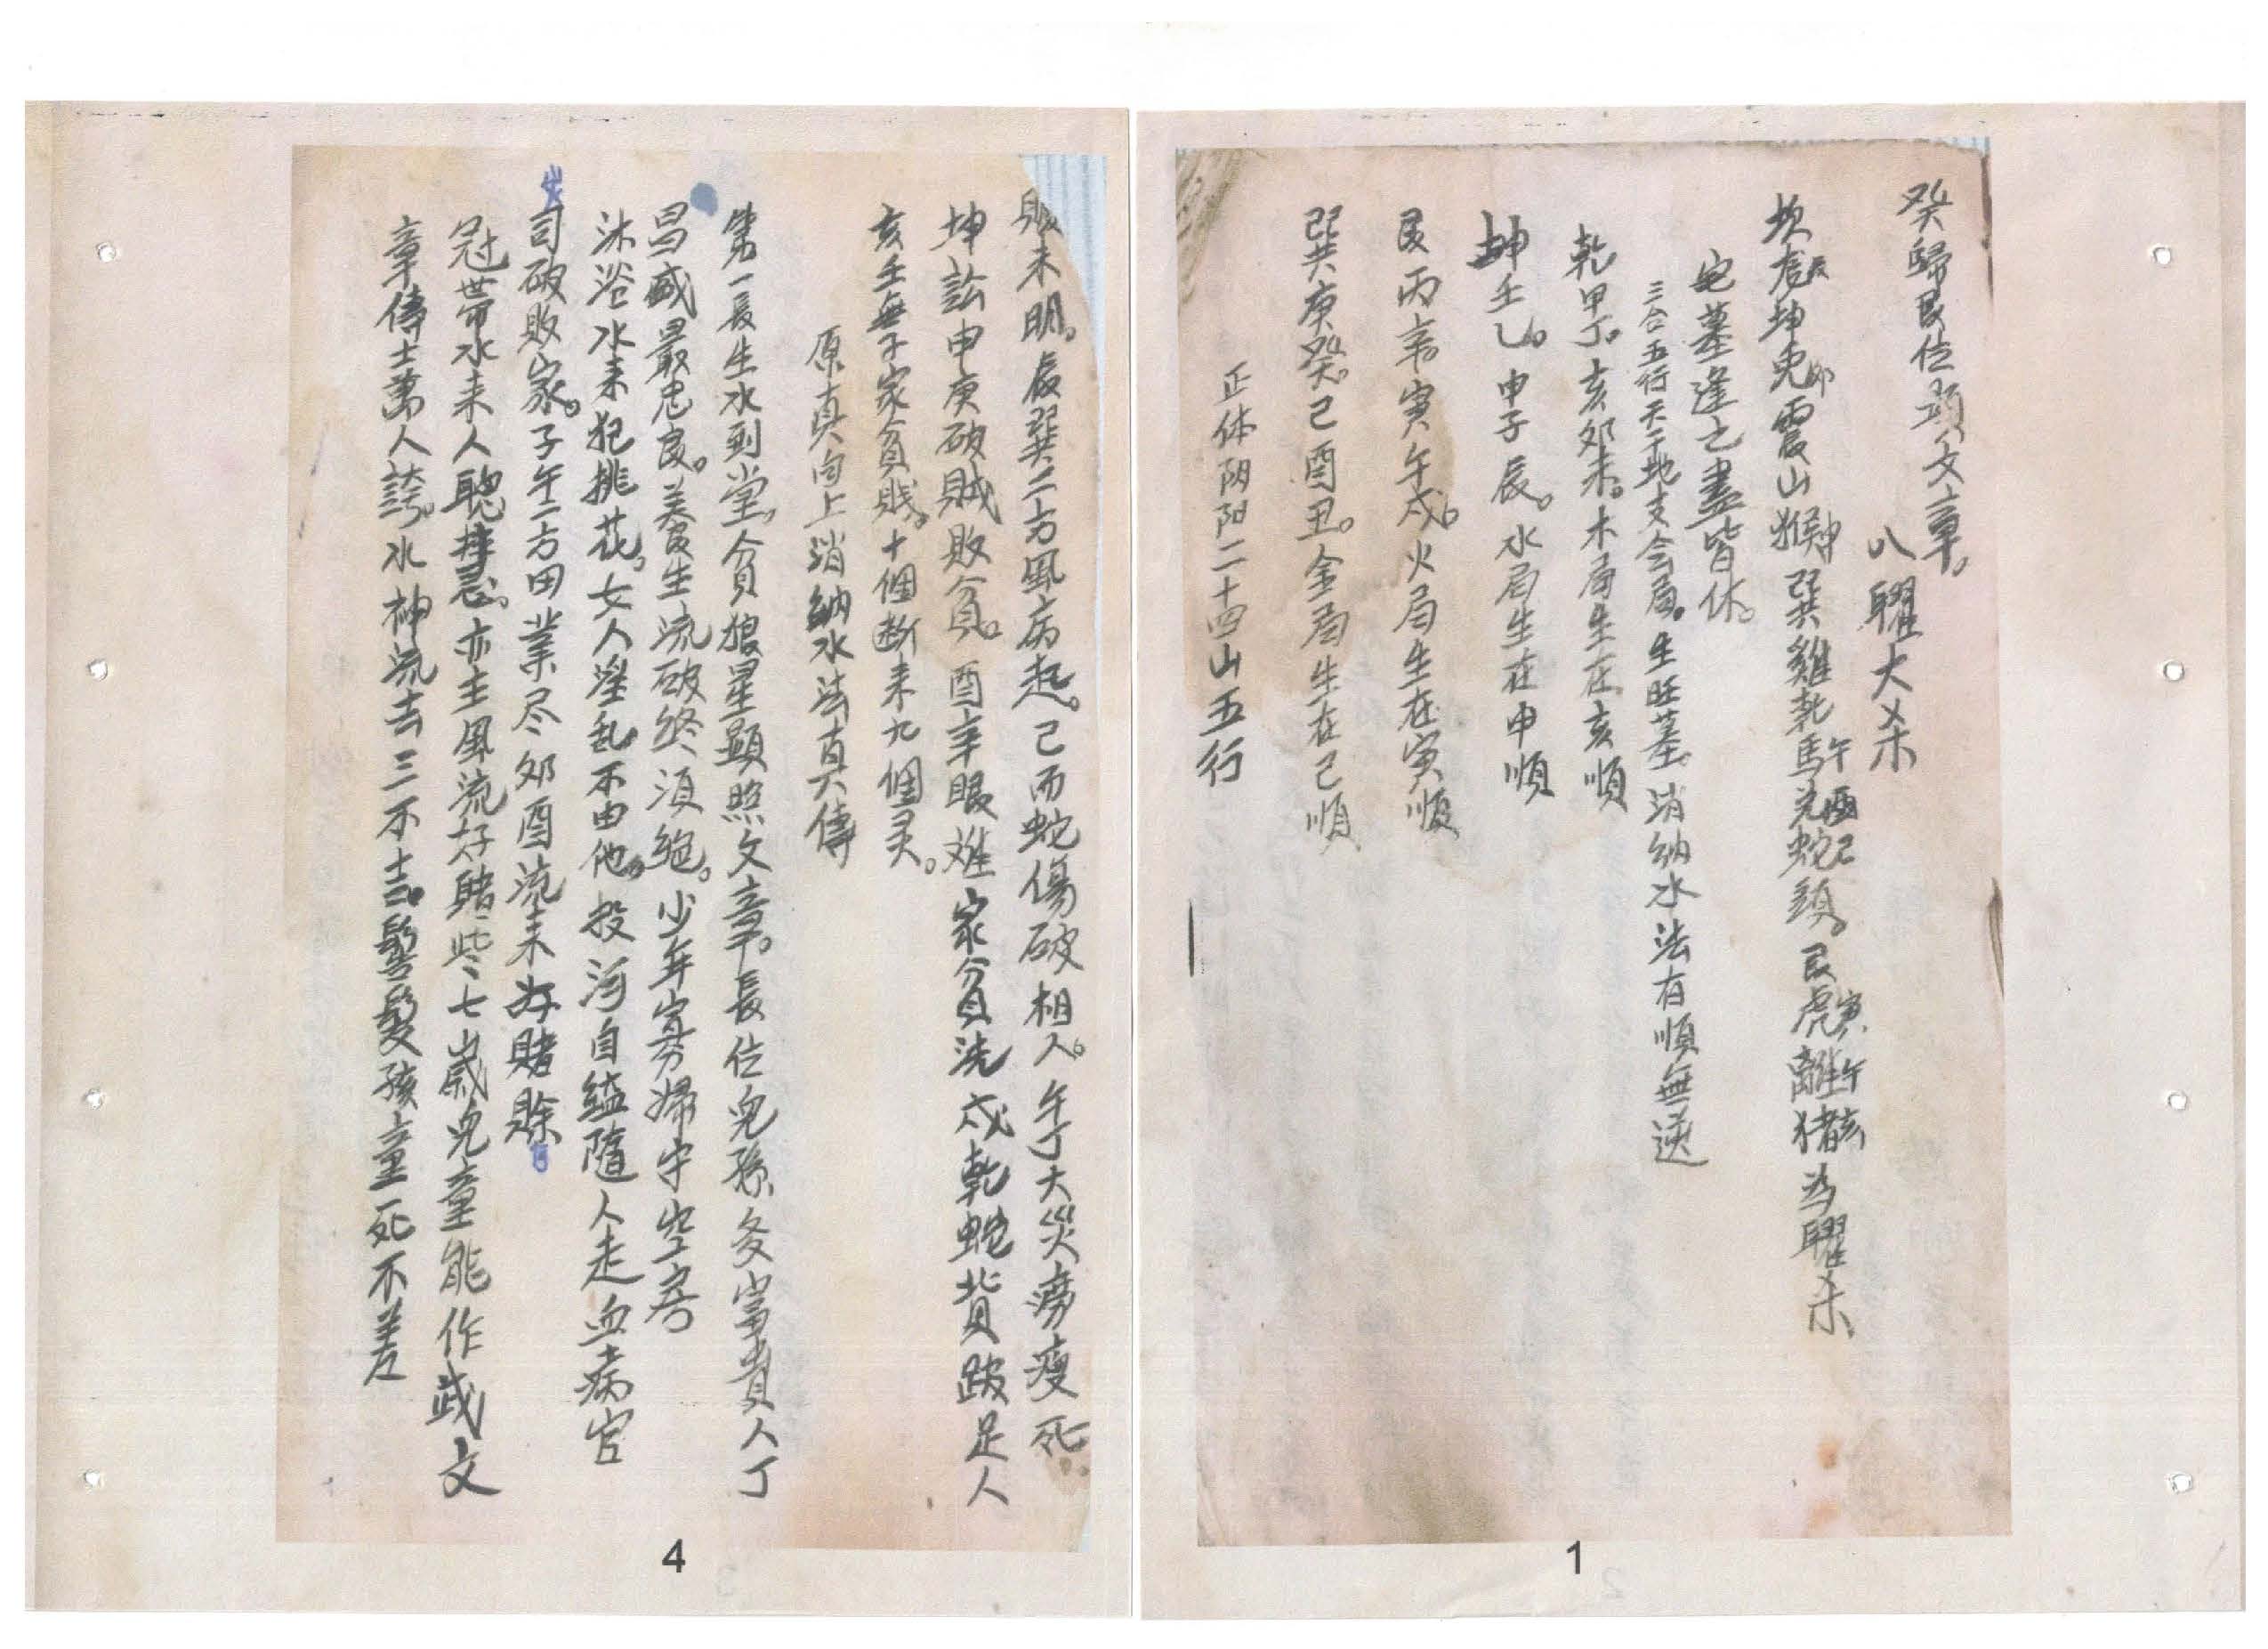 癸歸艮位顯文章。
八曜大杀
坎龙辰坤兎卯震山猴申巽雞乾馬午兑酉蛇巳頭。艮虎寅離午猪亥為曜杀
宅墓逢之盡皆休。
三合五行天干地支会局。生旺墓消纳水法有順無逆
乾甲丁。亥卯未。木局生在亥順
坤壬乙。申子辰。水局生在申順
艮丙辛。寅午戍。火局生在寅順
巽庚癸。已酉丑。金局生在已順
正体阴阳二十四山五行
1
未明。辰巽二方風病起。已而蛇傷破相人。午丁大災癆瘦死
坤訟申庚破賊敗貧。酉辛眼难家貧洗戍乾蛇背跛足人
亥壬無子家貧賎。十個断来九個灵。
原真向上消納水法真傳
第一長生水到堂。貪狼星顕照文章。長位兒孫多富貴人丁
昌盛最忠良。養生流破終須絕。少年寡婦守空房
沐浴水来犯挑花。女人淫乱不由他。投河自缢隨人走血病官
司破敗家。子午二方田業尽卯酉流来好賭賖
冠带水来人聰。亦主風流好賭些七歲兒童能作武文
章傳士萬人誇。水神流去三不吉。髫髮孩童死不差
4